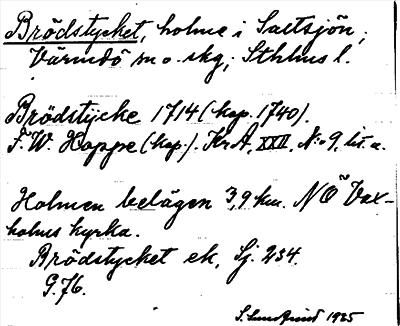 Brödstycket, holme i Saltsjön,
Värmdö m o skg, Sthlms l.
Brödstÿcke 1714 (kop. 1740).
F. W. Hoppe (kop.). KrA, XXII, N:o 9, lit. a.
Holmen belägen 3,9 km. NÖ Vax-
holms kyrka.
Brödstycket ek, Sj. 234.
G.76.
S. Lundqvist 1925